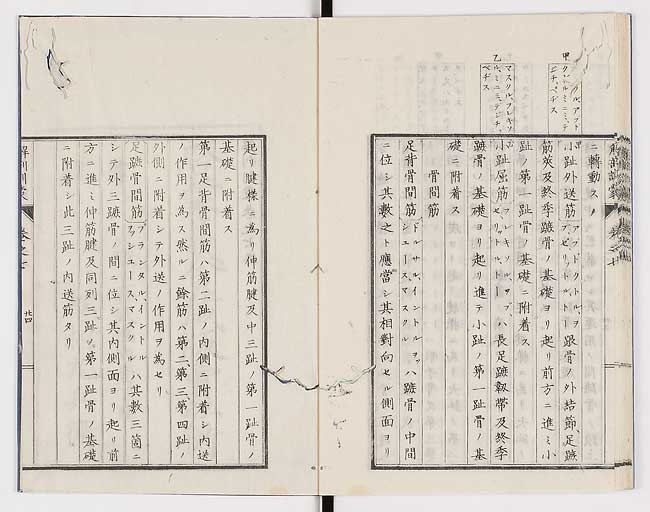 ニ轉動スノ
小趾外送筋 アブドクトル、ヲブゼ、リットル、トー 跟骨ノ外結節、足蹠
筋莢及終季蹠骨ノ基礎ヨリ起リ前方ニ進ミ小
趾ノ第一趾骨ノ基礎ニ附着ス
小趾屈筋 フレキソル、ヲブ、リットル、トー ハ長足蹠靱帶及終季
蹠骨ノ基礎ヨリ起リ進テ小趾ノ第一趾骨ノ基
礎ニ附着ス
骨間筋
足背骨間筋 ドルサル、イントルヲッシュース、マスクル ハ蹠骨ノ中間
ニ位シ其數之ト應當シ其相對向セル側面ヨリ
乙
マスクル、フレキソ
ル、ミニミ、デジチ、
ペヂス
起リ腱樣ニ為リ伸筋腱及中三趾ノ第一趾骨ノ
基礎ニ附着ス
第一足背骨間筋ハ第二趾ノ内側ニ附着シ内送
ノ作用ヲ為ス然ルニ餘筋ハ第二第三第四趾ノ
外側ニ附着シテ外送ノ作用ヲ為セリ
足蹠骨間筋 プランタル、イントルヲッシュース、マスクル ハ其數三箇ニ
シテ外三蹠骨ノ間ニ位シ其内側面ヨリ起リ前
方ニ進ミ伸筋腱及同列三趾ノ第一趾骨ノ基礎
ニ附着シ此三趾ノ内送筋タリ
解剖訓蒙
廿四